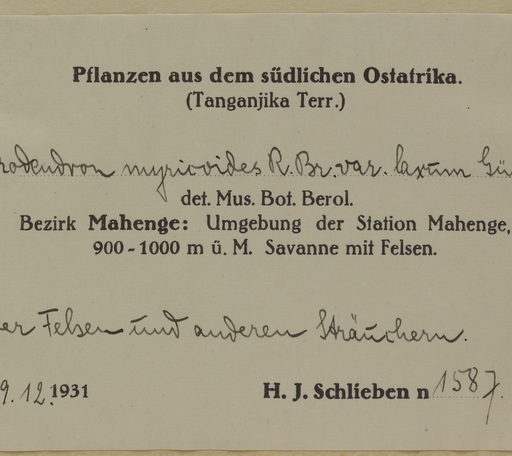 Pflanzen aus dem südlichen Ostafrika.
(Tanganjika Terr.)
rodendron myricoides R. Br. var. laxum Gü
det. Mus. Bot. Berol.
Bezirk Mahenge: Umgebung der Station Mahenge,
900-1000 m ü. M. Savanne mit Felsen.
er Felsen und anderen Sträuchern.
9.12.1931 H. J. Schlieben n 1587.